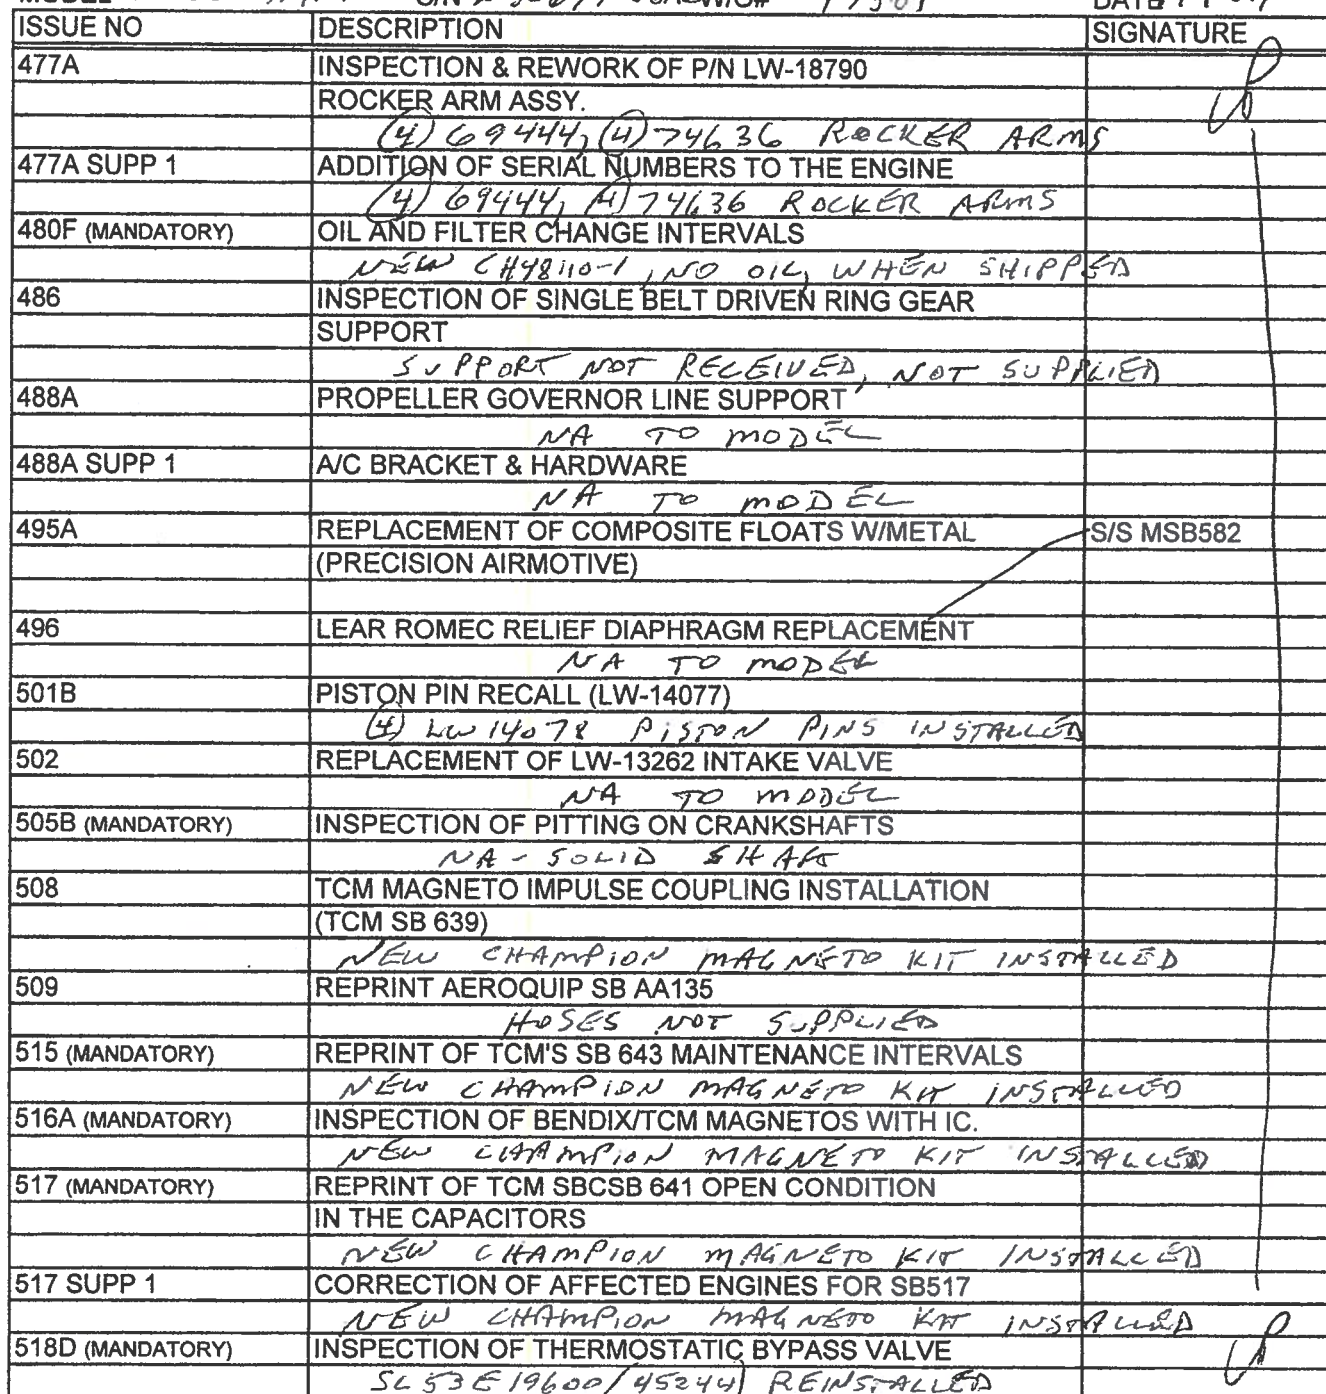 MODEL S/N W/O# DATE
ISSUE NO DESCRIPTION SIGNATURE
477A INSPECTION & REWORK OF P/N LW-18790
ROCKER ARM ASSY.
(4) 69444, (4) 74636 ROCKER ARMS
477A SUPP 1 ADDITION OF SERIAL NUMBERS TO THE ENGINE
(4) 69444, (4) 74636 ROCKER ARMS
480F (MANDATORY) OIL AND FILTER CHANGE INTERVALS
NEW CH48110-1, NO OIL, WHEN SHIPPED
486 INSPECTION OF SINGLE BELT DRIVEN RING GEAR
SUPPORT
SUPPORT NOT RECEIVED, NOT SUPPLIED
488A PROPELLER GOVERNOR LINE SUPPORT
NA TO MODEL
488A SUPP 1 A/C BRACKET & HARDWARE
NA TO MODEL
495A REPLACEMENT OF COMPOSITE FLOATS W/METAL S/S MSB582
(PRECISION AIRMOTIVE)
496 LEAR ROMEC RELIEF DIAPHRAGM REPLACEMENT
NA TO MODEL
501B PISTON PIN RECALL (LW-14077)
(4) LW14078 PISTON PINS INSTALLED
502 REPLACEMENT OF LW-13262 INTAKE VALVE
NA TO MODEL
505B (MANDATORY) INSPECTION OF PITTING ON CRANKSHAFTS
NA - SOLID SHAFT
508 TCM MAGNETO IMPULSE COUPLING INSTALLATION
(TCM SB 639)
NEW CHAMPION MAGNETO KIT INSTALLED
509 REPRINT AEROQUIP SB AA135
HOSES NOT SUPPLIED
515 (MANDATORY) REPRINT OF TCM'S SB 643 MAINTENANCE INTERVALS
NEW CHAMPION MAGNETO KIT INSTALLED
516A (MANDATORY) INSPECTION OF BENDIX/TCM MAGNETOS WITH IC.
NEW CHAMPION MAGNETO KIT INSTALLED
517 (MANDATORY) REPRINT OF TCM SBCSB 641 OPEN CONDITION
IN THE CAPACITORS
NEW CHAMPION MAGNETO KIT INSTALLED
517 SUPP 1 CORRECTION OF AFFECTED ENGINES FOR SB517
NEW CHAMPION MAGNETO KIT INSTALLED
518D (MANDATORY) INSPECTION OF THERMOSTATIC BYPASS VALVE
SL53E19600/45244) REINSTALLED